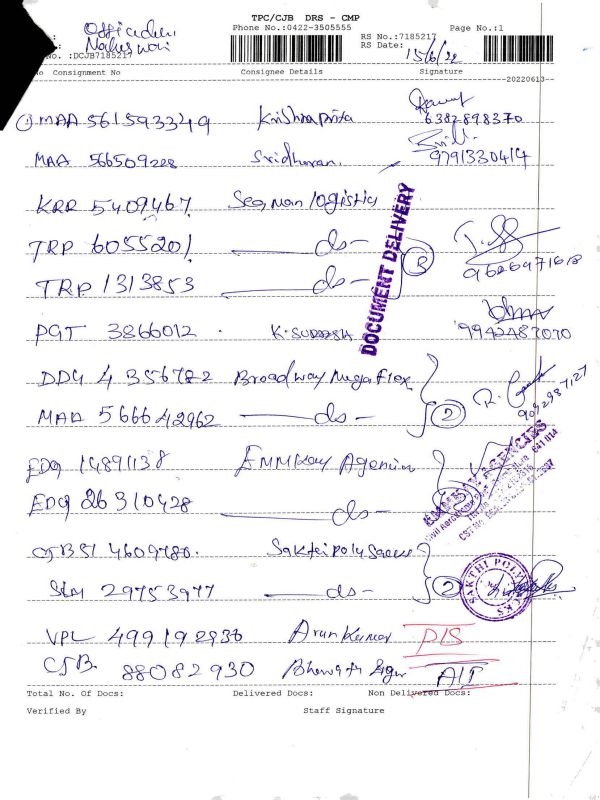 TPC/CJB DRS - CMP
Phone No.:0422-3505555 Page No.:1
RS No.:7185217
RS Date: 15/6/22
No. :DCJB7185217
No Consignment No Consignee Details Signature
20220613
① MAA 561593349 Krishnapriya 6382898370
MAA 566509228 Sridharan. 9791330414
KRR 5409467. Seaman logistics
TRP 6055201 ds
TRP 1313853 ds 9626971618
DOCUMENT DELIVERY
PGT 3866012 K. SURESH 9942487070
DDG 4356782 Broadway Megaflex
MAA 566642962 ds ② 9092987127
EDG 14891138 EMMKay Agencies
EDG 26310428 ds
4609780. Sakthi Poly Sacks
SLM 29753977 ds ②
SAKTHI POLY
VPL 499192936 Arun Kumar D/S
CJB. 88082930
Total No. Of Docs: Delivered Docs: Non Delivered Docs:
Verified By Staff Signature